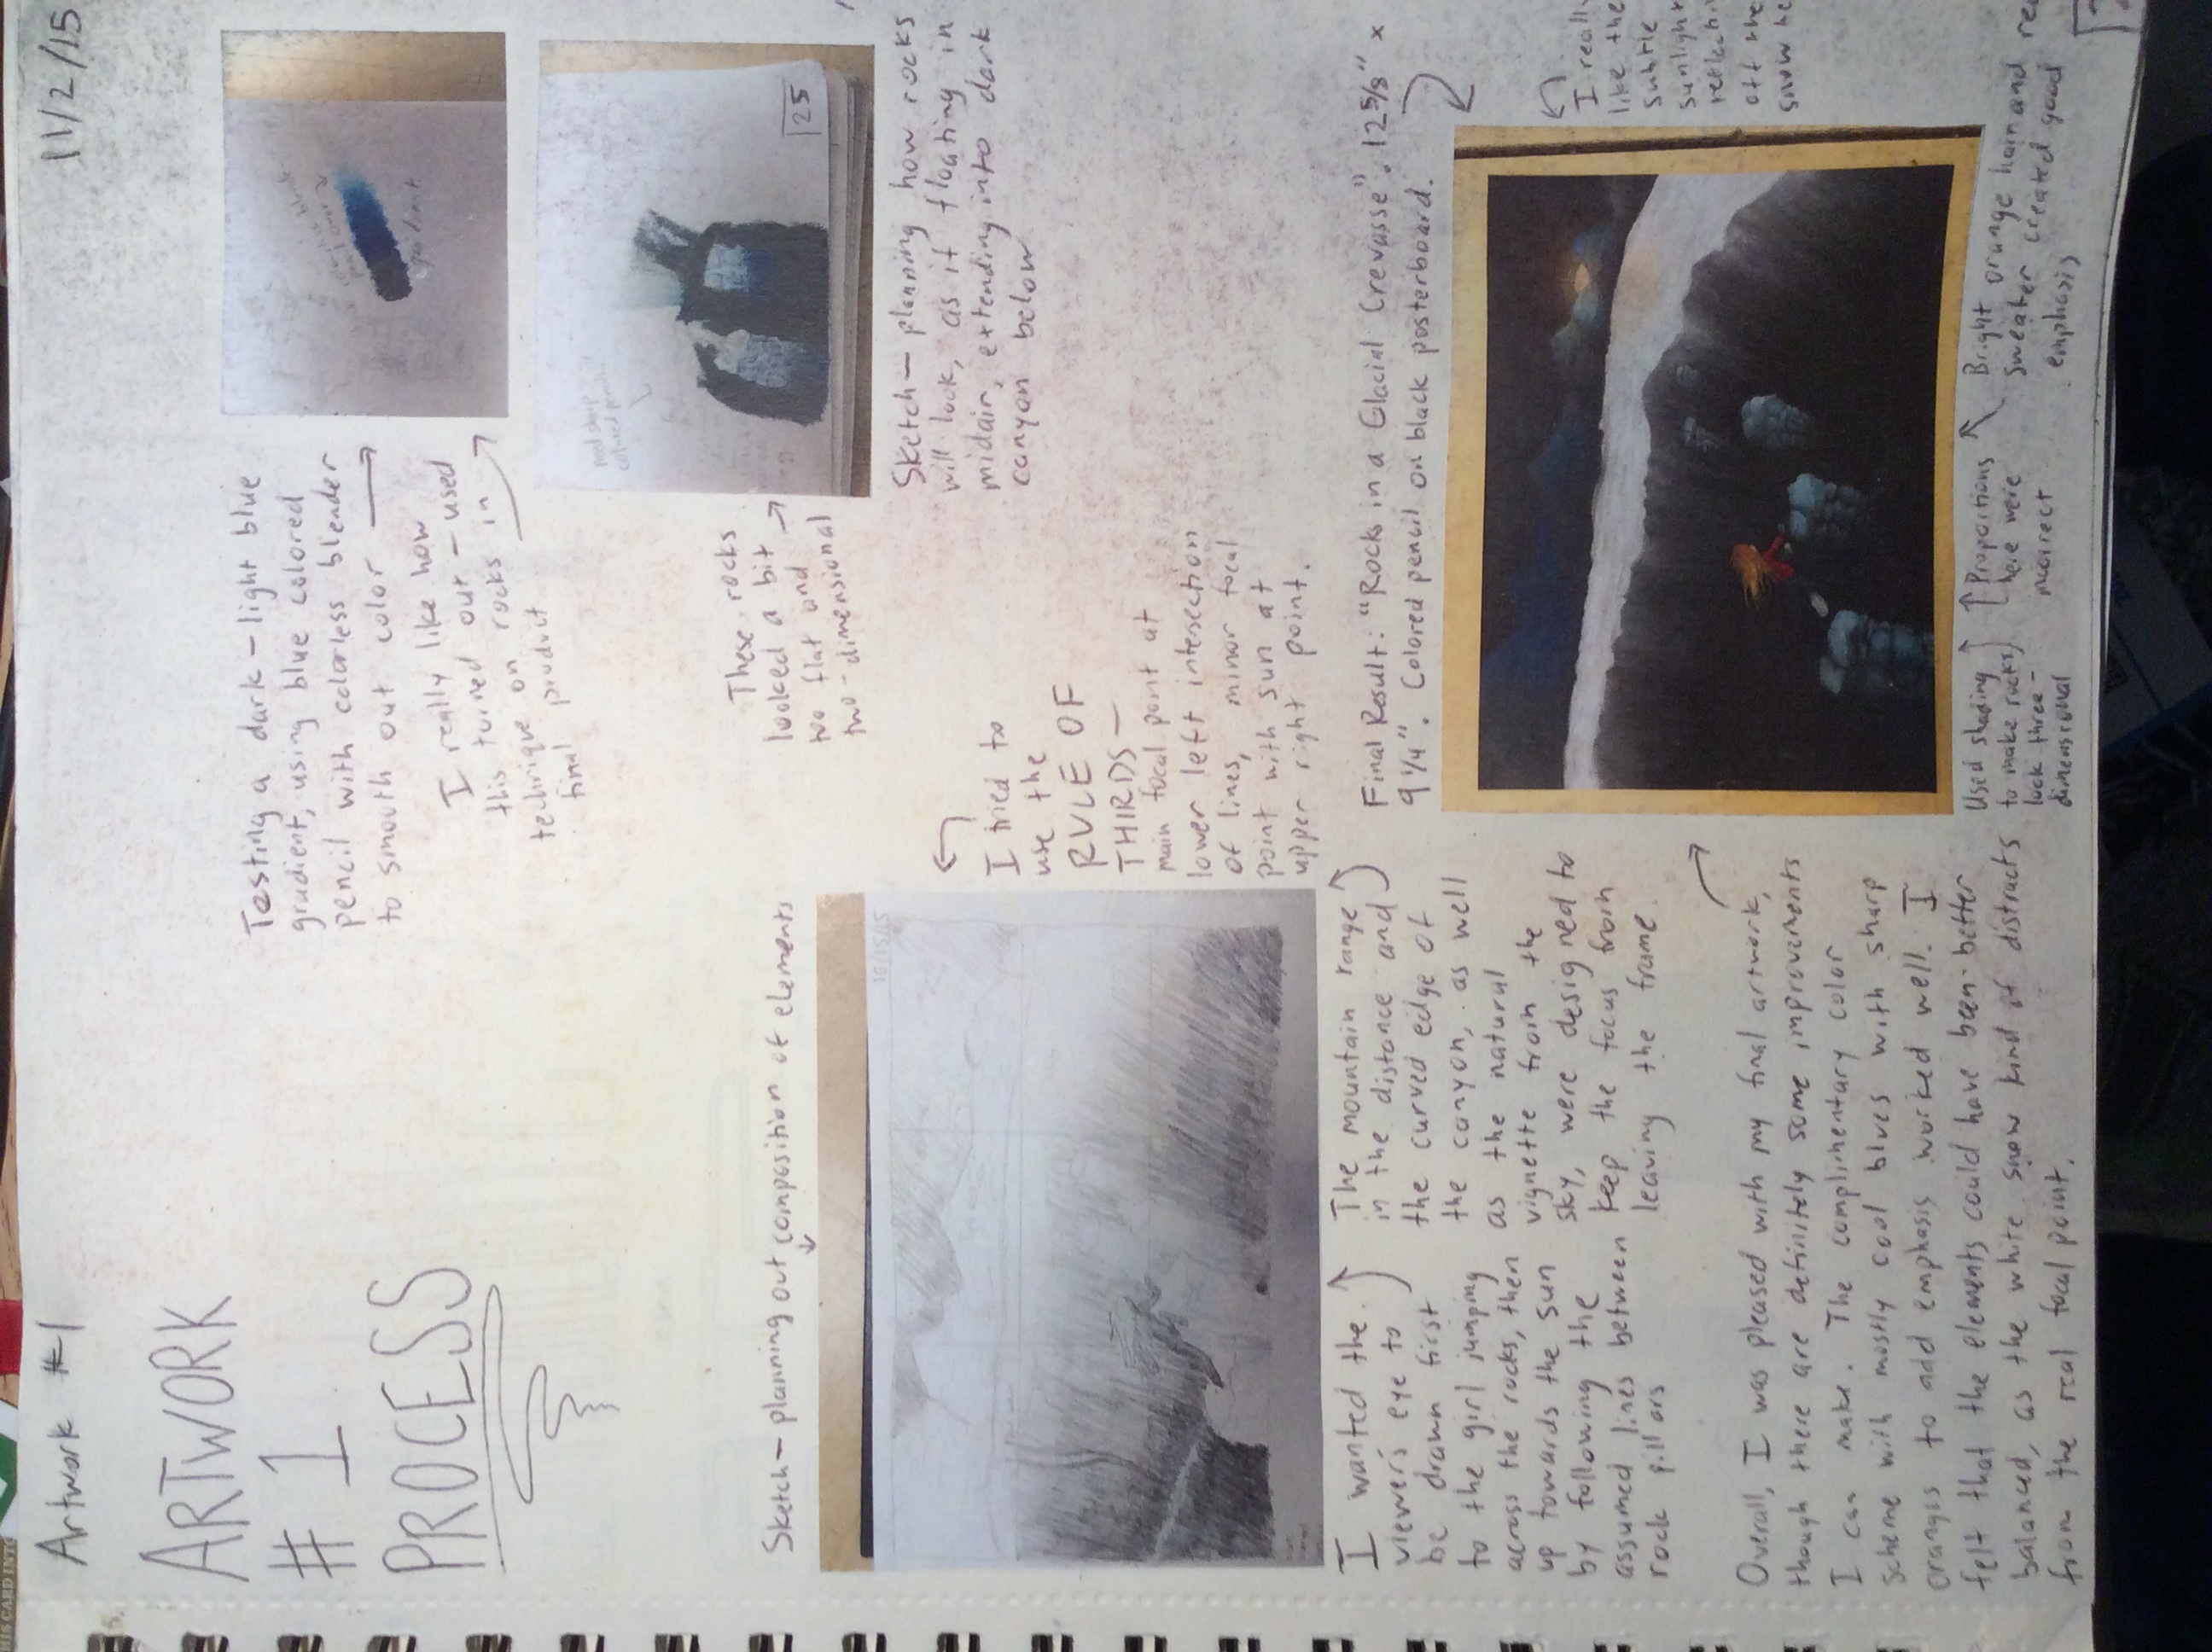 Artwork #1
11/2/15
ARTWORK
# 1
PROCESS
Testing a dark - light blue
gradient, using blue colored
pencil with colorless blender
to smooth out color
I really like how
this turned out - used
technique on rocks in
final product
These rocks
looked a bit
too flat and
two-dimensional
25
Sketch - planning how rocks
will look, as if floating in
midair, extending into dark
canyon below
Sketch - planning out composition of elements
10/15/15
I tried to
use the
RULE OF
THIRDS -
main focal point at
lower left intersection
of lines, minor focal
point with sun at
upper right point.
I wanted the
viewer's eye to
be drawn first
to the girl jumping
across the rocks, then
up towards the sun
by following the
assumed lines between
rock pillars
The mountain range
in the distance and
the curved edge of
the canyon, as well
as the natural
vignette from the
sky, were designed to
keep the focus from
leaving the frame.
Final Result: "Rocks in a Glacial Crevasse". 12 5/8" x
9 1/4". Colored pencil on black posterboard.
I really
like the
subtle
sunlight
off the
snow he
Used shading
to make rocks
look three-
dimensional
Proportions
here were
Bright orange hair and red
sweater created good
emphasis
Overall, I was pleased with my final artwork,
though there are definitely some improvements
I can make. The complimentary color
scheme with mostly cool blues with sharp
oranges to add emphasis worked well. I
felt that the elements could have been better
balanced, as the white snow kind of distracts
from the real focal point.